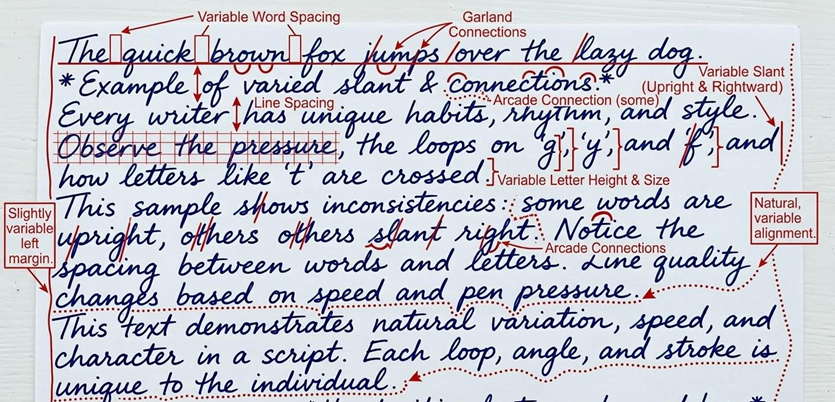 Variable Word Spacing
Garland
Connections
The quick brown fox jumps over the lazy dog.
*Example of varied slant & connections.*
Variable Slant
(Upright & Rightward)
Line Spacing
Arcade Connection (some)
Every writer has unique habits, rhythm, and style.
Observe the pressure, the loops on 'g', 'y', and 'f', and
how letters like 't' are crossed.
Variable Letter Height & Size
This sample shows inconsistencies: some words are
Slightly
variable
left
margin.
Natural,
variable
alignment.
upright, others others slant right. Notice the
Arcade Connections
spacing between words and letters. Line quality
changes based on speed and pen pressure.
This text demonstrates natural variation, speed, and
character in a script. Each loop, angle, and stroke is
unique to the individual.